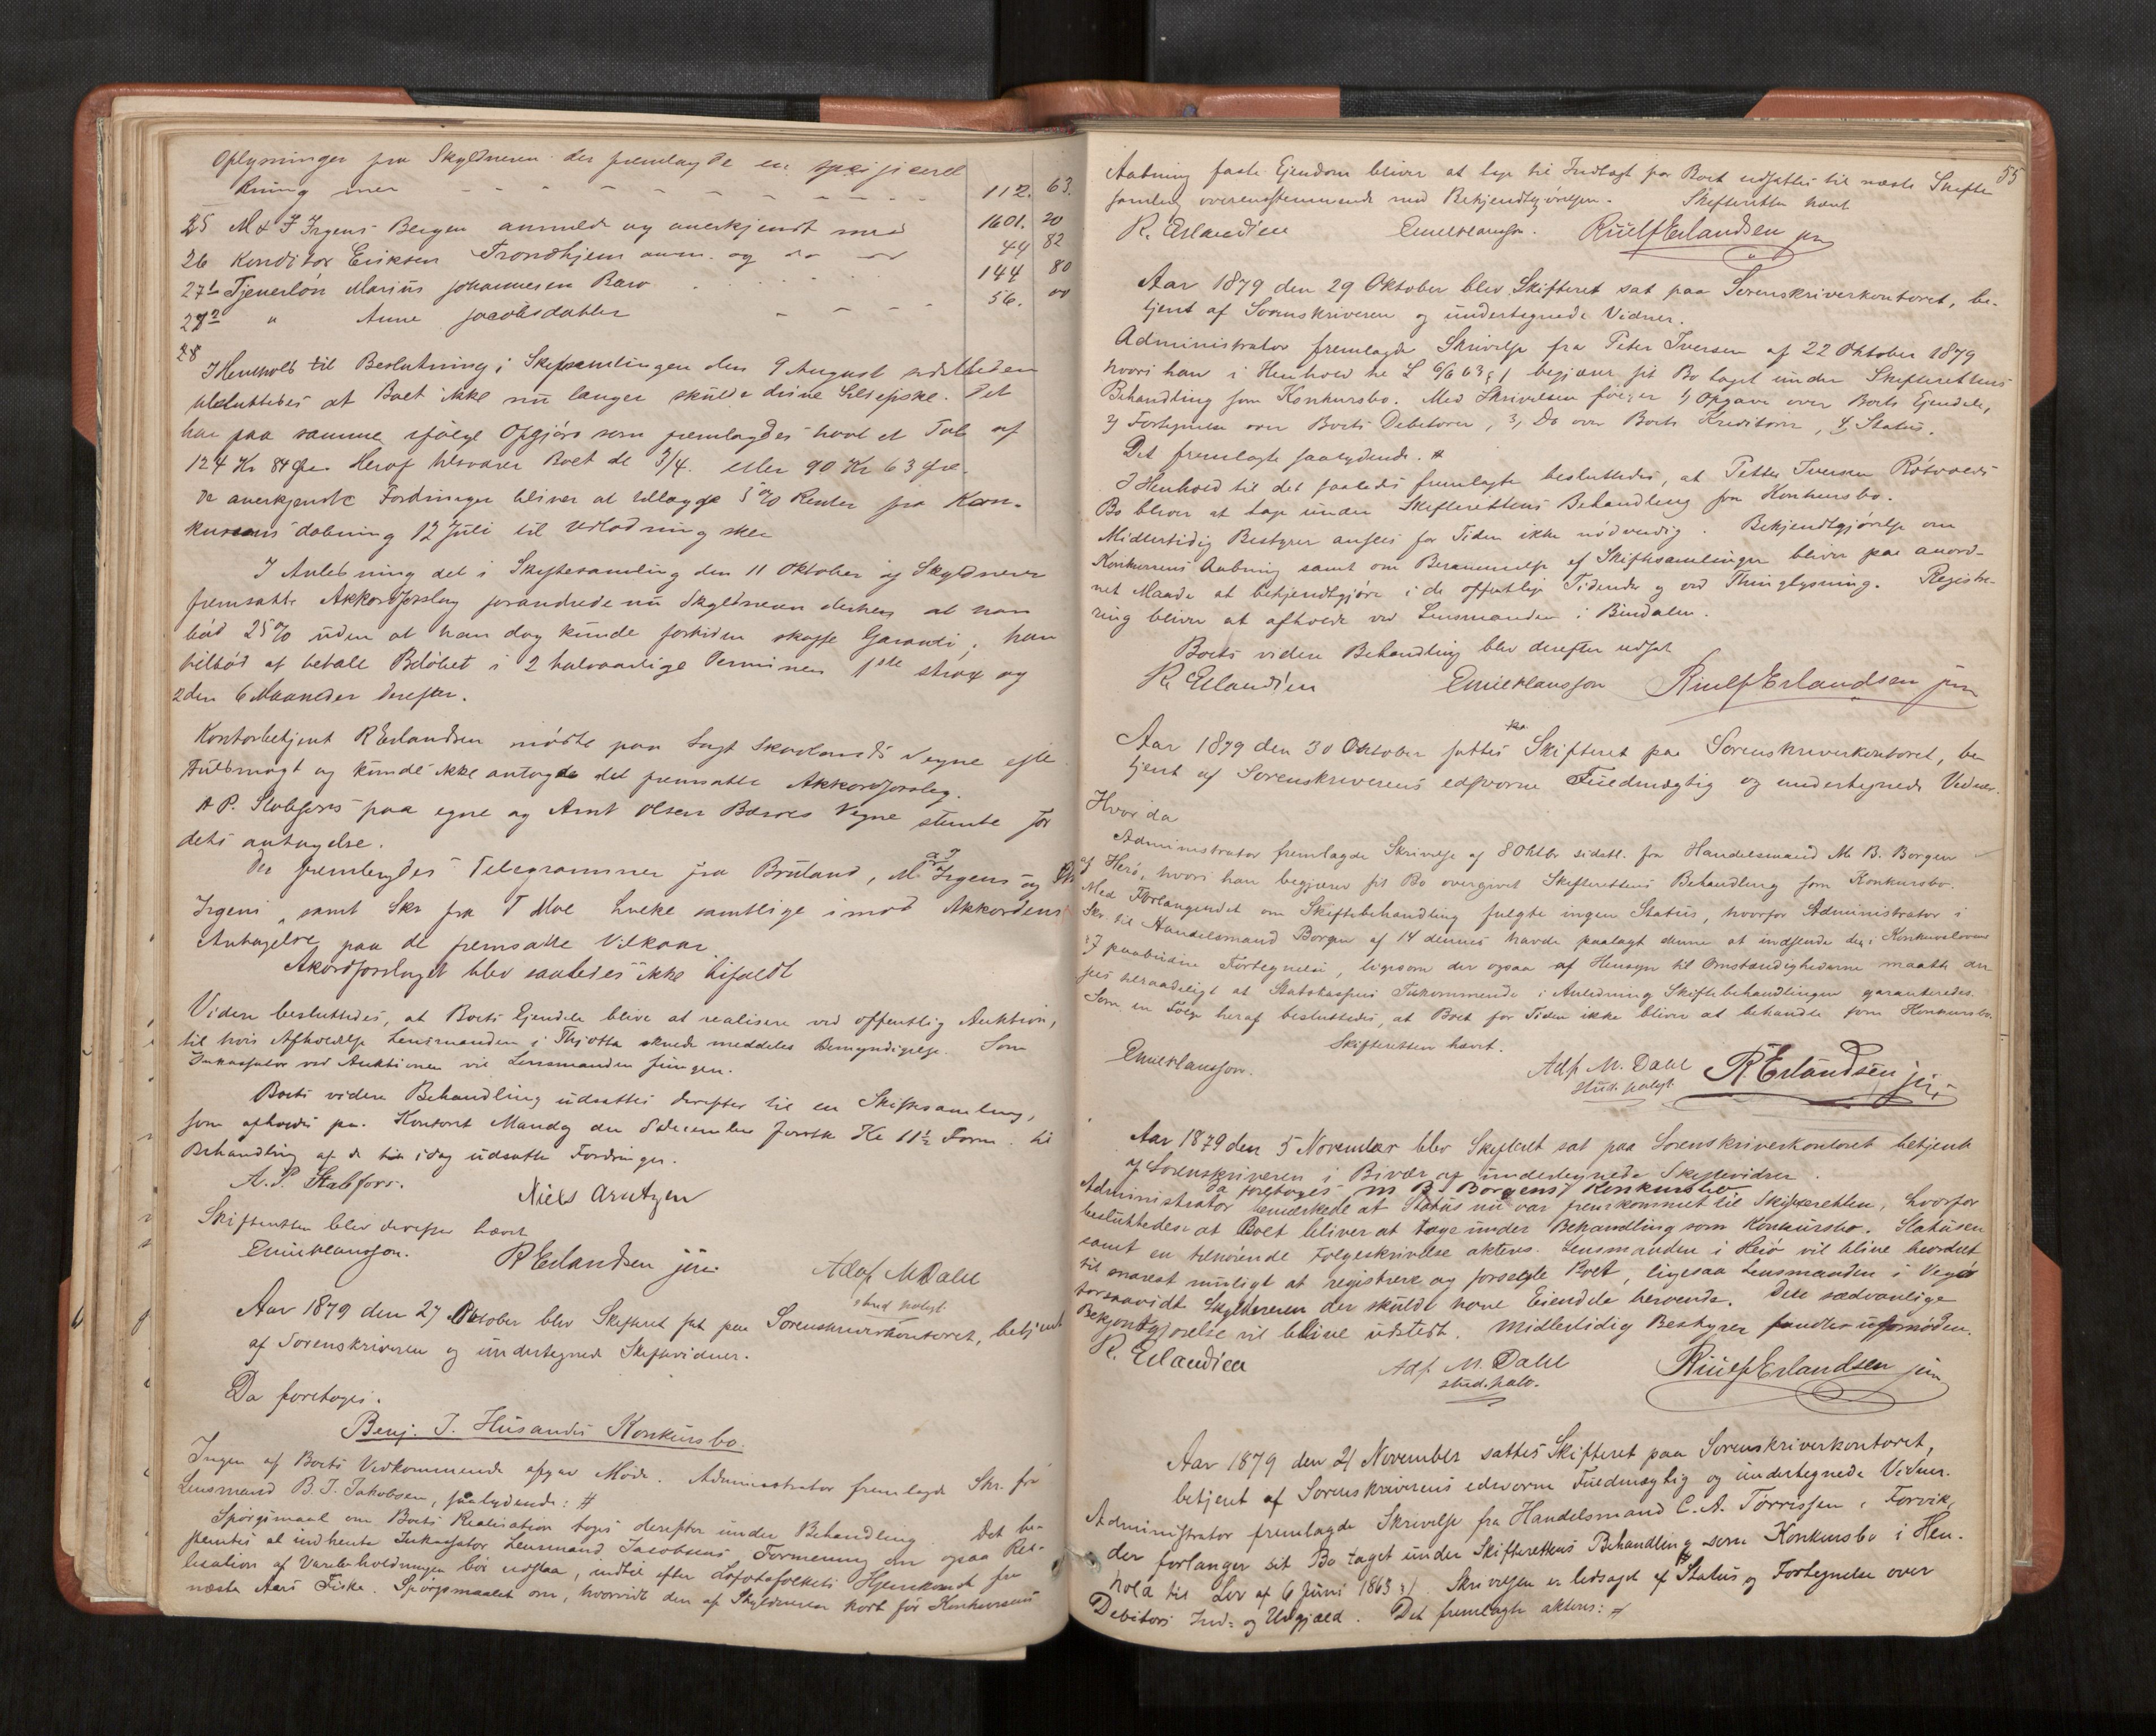 Oplysninger fra Skyldneren der fremlagde en specificeret
Regning med - - - - - - - - 112. 63.
25 M & J Irgens Bergen anmeldt og anerkjendt med 1601. 20
26 Konditor Eriksen Trondhjem anm. og do 44 82
27 1 Tjenerløn Marius Johannesen Barø 144 80
27 2 " Anne Jacobsdatter - - - 56. 00
28
I Henhold til Beslutning i Skiftesamlingen den 9 August
besluttedes at Boet ikke nu længer skulde drive Sildefiske. Det
har paa samme ifølge Opgjør som fremlagdes havt et Tab af
124 Kr 84 Øre. Heraf tilsvarer Boet de 3/4. eller 90 Kr 63 Øre.
De anerkjendte Fordringer bliver at tillægge 5 % Renter fra Kon-
kursens Aabning 12 Juli til Udlodning sker
I Anledning det i Skiftesamling den 11 Oktober af Skyldneren
fremsatte Akkordforslag forandrede nu Skyldneren derhen at han
bød 25 % uden at han dog kunde forhiden skaffe Garanti; han
tilbød at betale Beløbet i 2 halvaarlige Terminer 1ste strax og
2den 6 Maaneder derefter.
Kontorbetjent R Erlandsen mødte paa Sagf. Skavlands Vegne efter
Fuldmagt og kunde ikke antage det fremsatte Akkordforslag.
A P. Stabfors paa egne og Arnt Olsen Bærøes Vegne stemte for
dets antagelse.
Der fremlagdes Telegrammer fra Bruland, M. & J. Irgens og
Irgens, samt Skr fra T Moe hvilke samtlige imod Akkordens
Antagelse paa de fremsatte Vilkaar.
Akordforslaget blev saaledes ikke bifaldt
Videre besluttedes, at Boets Ejendele blive at realisere ved offentlig Auktion,
til hvis Afholdelse Lensmanden i Thjøtta skulde meddeles Bemyndigelse. Som
Inkassator ved Auktionen vil Lensmanden fungere.
Boets videre Behandling udsattes derefter til en Skiftesamling,
som afholdes paa Kontoret Mandag den 8 December førstk Kl 11½ Form. til
Behandling af de idag udsatte Fordringer.
A. P. Stabfors. Niels Arntzen
Skifteretten blev derefter hævet
Emil Hansson. R Erlandsen jun. Adolf M Dahl
stud polyt.
Aar 1879 den 27 Oktober blev Skifteret sat paa Sorenskriverkontoret, betjent
af Sorenskriveren og undertegnede Skiftevidner.
Da foretoges.
Benj. J. Husandes Konkursbo.
Ingen af Boets Vedkommende afgav Møde. Administrator fremlagde Skr. fra
Lensmand B. J. Jakobsen, saalydende: #
Spørgsmaal om Boets Realisation toges derefter under Behandling. Det be-
stemtes at indhente Inkassator Lensmand Jacobsens Formening om ogsaa Rea-
lisation af Varebeholdningen bør udstaa, indtil efter Lofotsfolkets Hjemkomst fra
næste Aars Fiske. Spørgsmaalet om, hvorvidt den af Skyldneren kort før Konkursens
55
Aabning faste Ejendom bliver at tage til Indtægt for Boet udsattes til næste Skifte-
samling overensstemmende med Bekjendtgjørelsen. Skifteretten hævet
R. Erlandsen Emil Hansson. Riulf Erlandsen jun
Aar 1879 den 29 Oktober blev Skifteret sat paa Sorenskriverkontoret, be-
tjent af Sorenskriveren og undertegnede Vidner.
Administrator fremlagde Skrivelse fra Peter Iversen af 22 Oktober 1879
hvori han i Henhold til L 6/6 63 § 1 begjærer sit Bo taget under Skifterettens
Behandling som Konkursbo. Med Skrivelsen følger 1) Opgave over Boets Ejendele,
2) Fortegnelse over Boets Debitorer, 3, Do over Boets Kreditorer, 4, Status.
Det fremlagte saalydende. #
I Henhold til det saaledes fremlagte besluttedes, at Petter Iversen Røtvolds
Bo bliver at tage under Skifterettens Behandling som Konkursbo.
Midlertidig Bestyrer ansees for Tiden ikke nødvendig. Bekjendtgjørelse om
Konkursens Aabning samt om Berammelse af Skiftesamlinger bliver paa anord-
net Maade at bekjendtgjøre i de offentlige Tidender og ved Thinglysning. Registre-
ring bliver at afholde ved Lensmanden i Bindalen.
Boets videre Behandling blev derefter udsat
R. Erlandsen Emil Hansson Riulf Erlandsen jun
Aar 1879 den 30 Oktober sattes Skifteret paa Sorenskriverkontoret, be
tjent af Sorenskriverens edsvorne Fuldmægtig og undertegnede Vidner.
Hvor da
Administrator fremlagde Skrivelse af 8 Oktbr sidstl. fra Handelsmand M. B. Borgen
af Herø, hvori han begjærer sit Bo overgivet Skifterettens Behandling som Konkursbo.
Med Forlangendet om Skiftebehandling fulgte ingen Status, hvorfor Administrator i
Skr. til Handelsmand Borgen af 14 dennes havde paalagt denne at indsende de i Konkurslovens
§ 7 paabudne Fortegnelser, ligesom der ogsaa af Hensyn til Omstændighederne maatte an-
sees tilraadeligt at Statskassens Tilkommende i Anledning Skiftebehandlingen garanteredes.
Som en Følge heraf besluttedes, at Boet for Tiden ikke bliver at behandle som Konkursbo.
Skifteretten hævet.
Emil Hansson. Adf. M. Dahl R. Erlandsen jun
stud. polyt.
Aar 1879 den 5 November blev Skifteret sat paa Sorenskriverkontoret betjent
af Sorenskriveren i Bivær og undertegnede Skiftevidner.
Da foretoges M B. Borgens Konkursbo
Administrator bemærkede at Status nu var fremkommet til Skifteretten, hvorfor
besluttedes at Boet bliver at tage under Behandling som Konkursbo. Statusen
samt en tilhørende Følgeskrivelse akteres. Lensmanden i Herø vil blive beordret
til snarest muligt at registrere og forsegle Boet, ligesaa Lensmanden i Vegø
forsaavidt Skyldneren der skulde have Eiendele beroende. Den sædvanlige
Bekjendtgjørelse vil blive udstedt. Midlertidig Bestyrer fandtes ufornøden.
R. Erlandsen Adf. M. Dahl Riulf Erlandsen jun
stud. polv.
Aar 1879 den 21 November sattes Skifteret paa Sorenskriverkontoret,
betjent af Sorenskriverens edsvorne Fuldmægtig og undertegnede Vidner.
Administrator fremlagde Skrivelse fra Handelsmand C. A. Tørrissen i Forvik,
der forlanger sit Bo taget under Skifterettens Behandling som Konkursbo i Hen-
hold til Lov af 6 Juni 1863 § 1. Skrivelsen er ledsaget af Status og Fortegnelse over
Debitors Ind- og Udgjæld. Det fremlagte akteres: #